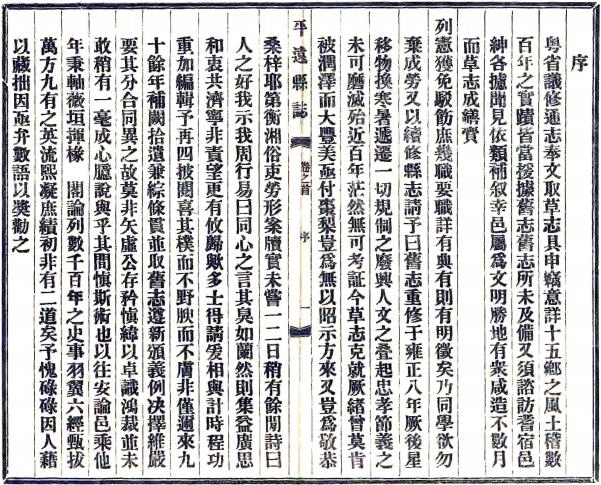 序
粤省議修通志奉文取草志具申竊意詳十五鄉之風土稽數
百年之實蹟皆當援據舊志舊志所未及備又須諮訪耆宿邑
紳各據聞見依類補叙幸邑屬爲文明勝地有衆咸造不數月
而草志成繕實
列憲獲免駁飭庶幾職要職詳有典有則有明徵矣乃同學欲勿
棄成勞又以續修縣志請予曰舊志重修于雍正八年厥後星
移物換寒暑遞遷一切規制之廢興人文之疊起忠孝節義之
未可磨滅殆近百年茫然無可考証今草志克就厥緒曾莫肯
被潤澤而大豐美亟付棗梨豈爲無以昭示方來又豈爲敬恭
平遠縣誌
卷之首
序
一
桑梓耶第衡湘俗吏勞形案牘實未嘗一二日稍有餘閒詩曰
人之好我示我周行易曰同心之言其臭如蘭然則集益廣思
和衷共濟寧非責望更有攸歸歟多士得請爰相與計時程功
重加編輯予再四披閱喜其樸而不野腴而不膚非僅邇來九
十餘年補闕拾遺兼綜條貫並取舊志遵新頒義例決擇維嚴
要其分合同異之故莫非矢虛公存矜愼緯以卓識鴻裁並未
敢稍有一毫成心臆說與乎其間愼斯術也以往安論邑乘他
年秉軸薇垣揮椽 閣論列數千百年之史事羽翼六經甄拔
萬方九有之英流熙凝庶績初非有二道矣予愧碌碌因人藉
以藏拙因亟弁數語以奬勸之